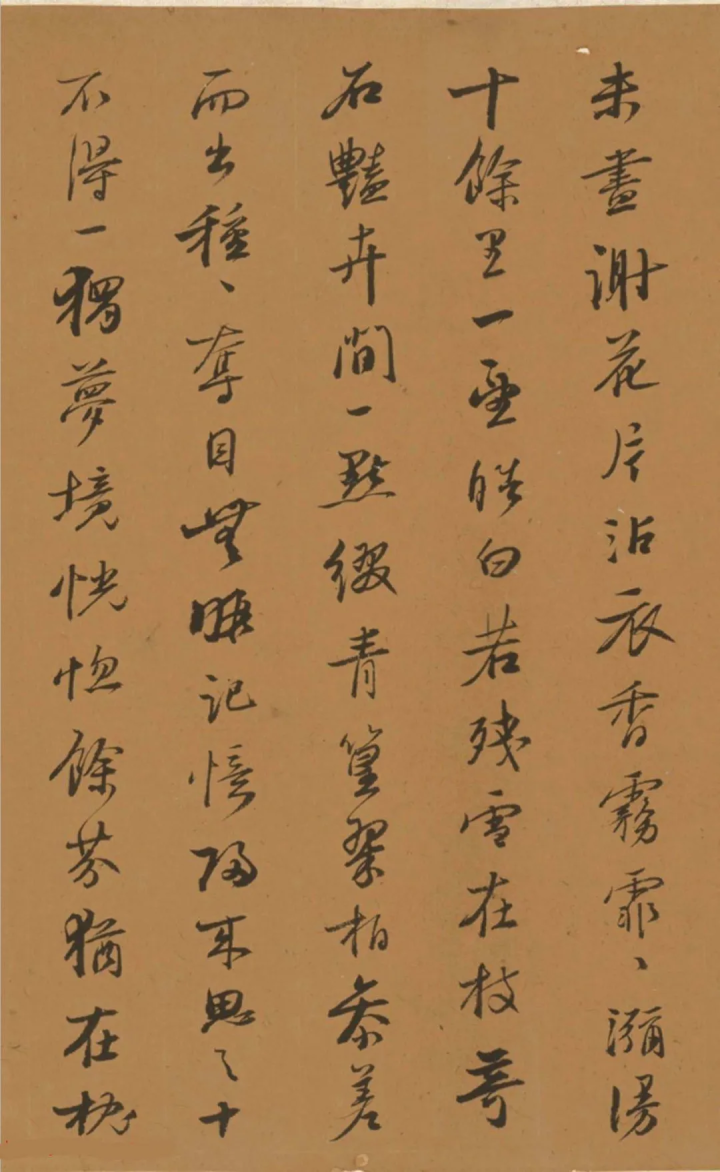 未盡謝花片沾衣香霧霏、瀰漫
十餘里一望皓白若殘雪在枝奇
石豔卉間一點綴青篁翠柏參差
而出種、奪目無暇記憶歸来思之十
不得一獨夢境恍惚餘芬猶在枕